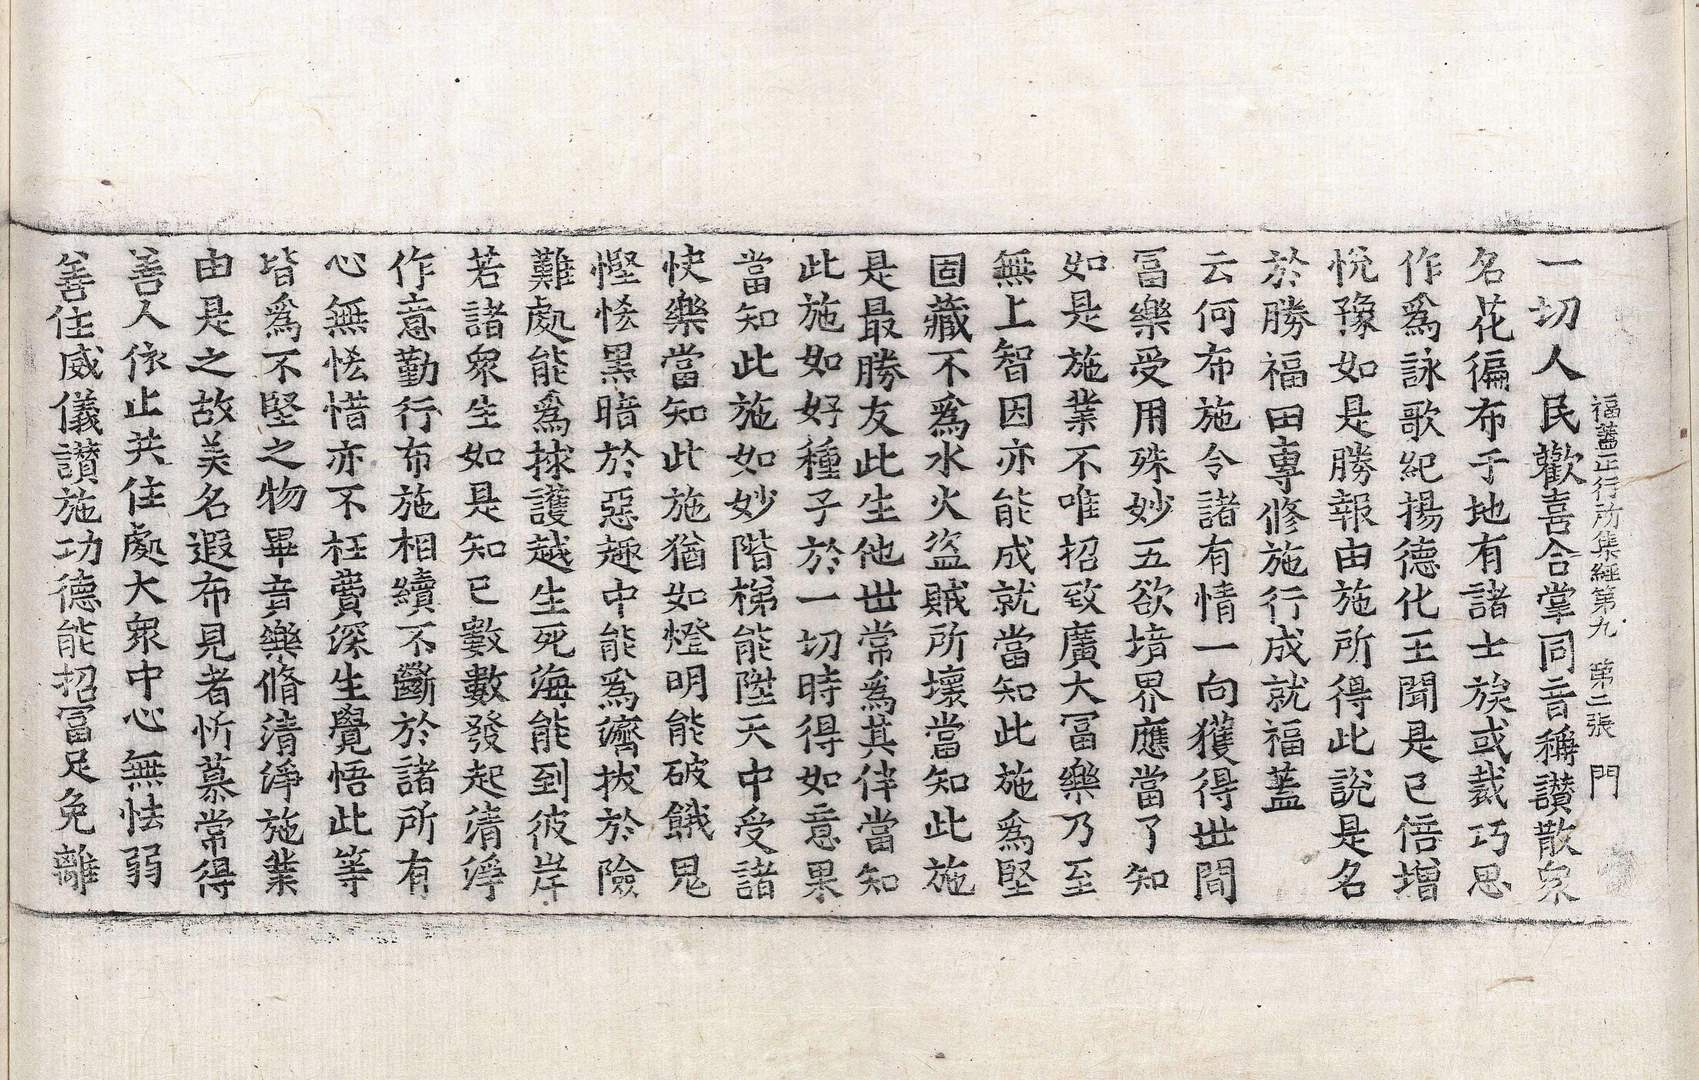 福蓋正行所集經第九　第二張　門
一切人民歡喜合掌同音稱讃散衆
名花徧布于地有諸士族或裁巧思
作爲詠歌紀揚德化王聞是已倍增
悅豫如是勝報由施所得此說是名
於勝福田專修施行成就福蓋
云何布施令諸有情一向獲得世間
冨樂受用殊妙五欲境界應當了知
如是施業不唯招致廣大冨樂乃至
無上智因亦能成就當知此施爲堅
固藏不爲水火盜賊所壞當知此施
是最勝友此生他世常爲其伴當知
此施如好種子於一切時得如意果
當知此施如妙階梯能陞天中受諸
快樂當知此施猶如燈明能破餓鬼
慳悋黑暗於惡趣中能爲濟拔於險
難處能爲捄護越生死海能到彼岸
若諸衆生如是知已數數發起清淨
作意勤行布施相續不斷於諸所有
心無悋惜亦不枉費深生覺悟此等
皆爲不堅之物畢竟樂脩清淨施業
由是之故美名遐布見者忻慕常得
善人依止共住處大衆中心無怯弱
善住威儀讃施功德能招冨足免離